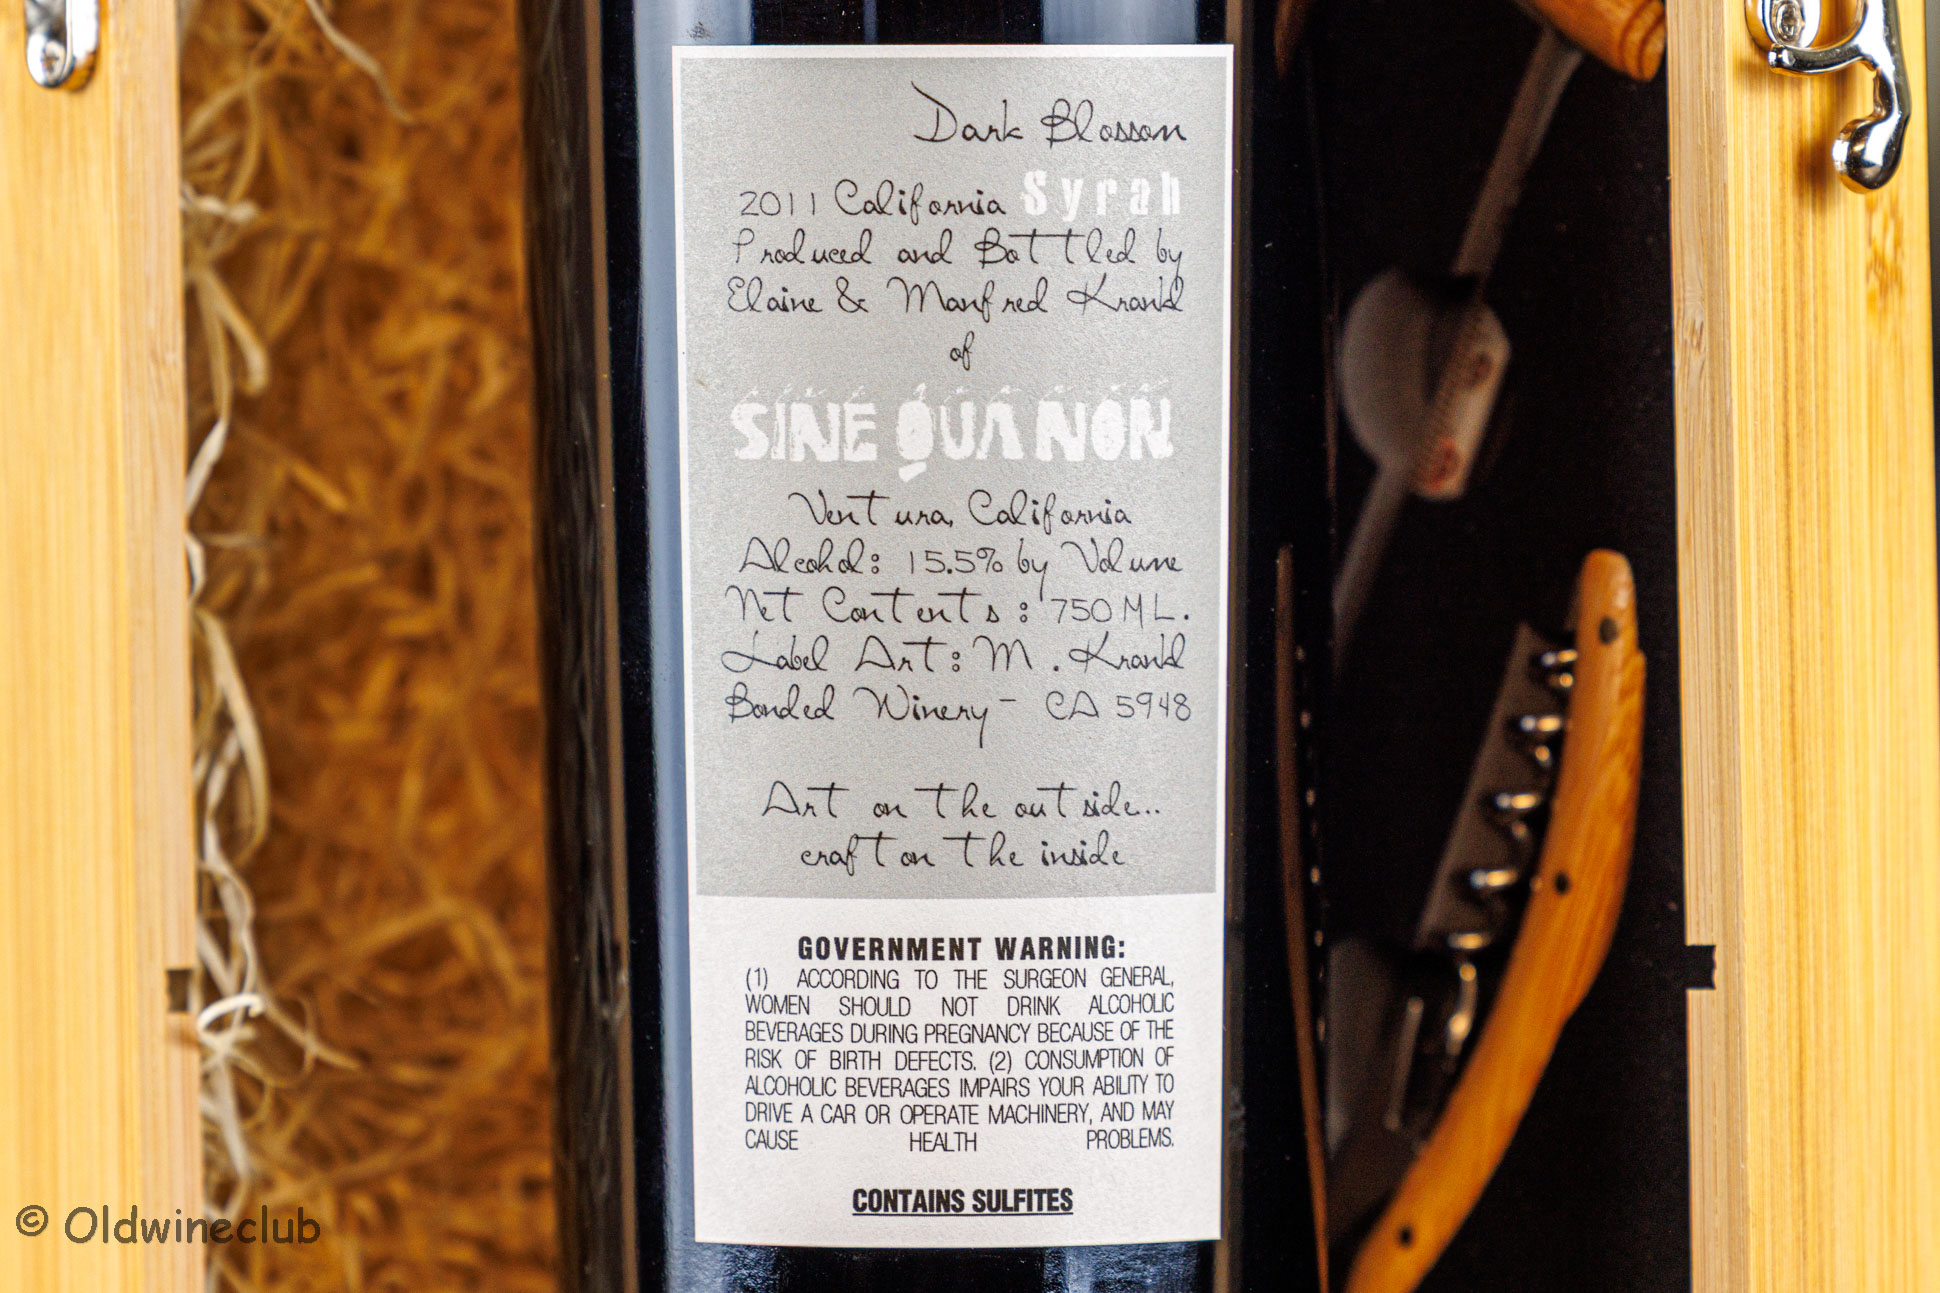 Dark Blossom
2011 California Syrah
Produced and Bottled by
Elaine & Manfred Krankl
of
SINE QUA NON
Ventura, California
Alcohol: 15.5% by Volume
Net Contents: 750ML.
Label Art: M. Krankl
Bonded Winery - CA 5948
Art on the outside..
craft on the inside
GOVERNMENT WARNING:
(1) ACCORDING TO THE SURGEON GENERAL,
WOMEN SHOULD NOT DRINK ALCOHOLIC
BEVERAGES DURING PREGNANCY BECAUSE OF THE
RISK OF BIRTH DEFECTS. (2) CONSUMPTION OF
ALCOHOLIC BEVERAGES IMPAIRS YOUR ABILITY TO
DRIVE A CAR OR OPERATE MACHINERY, AND MAY
CAUSE HEALTH PROBLEMS.
CONTAINS SULFITES
© Oldwineclub